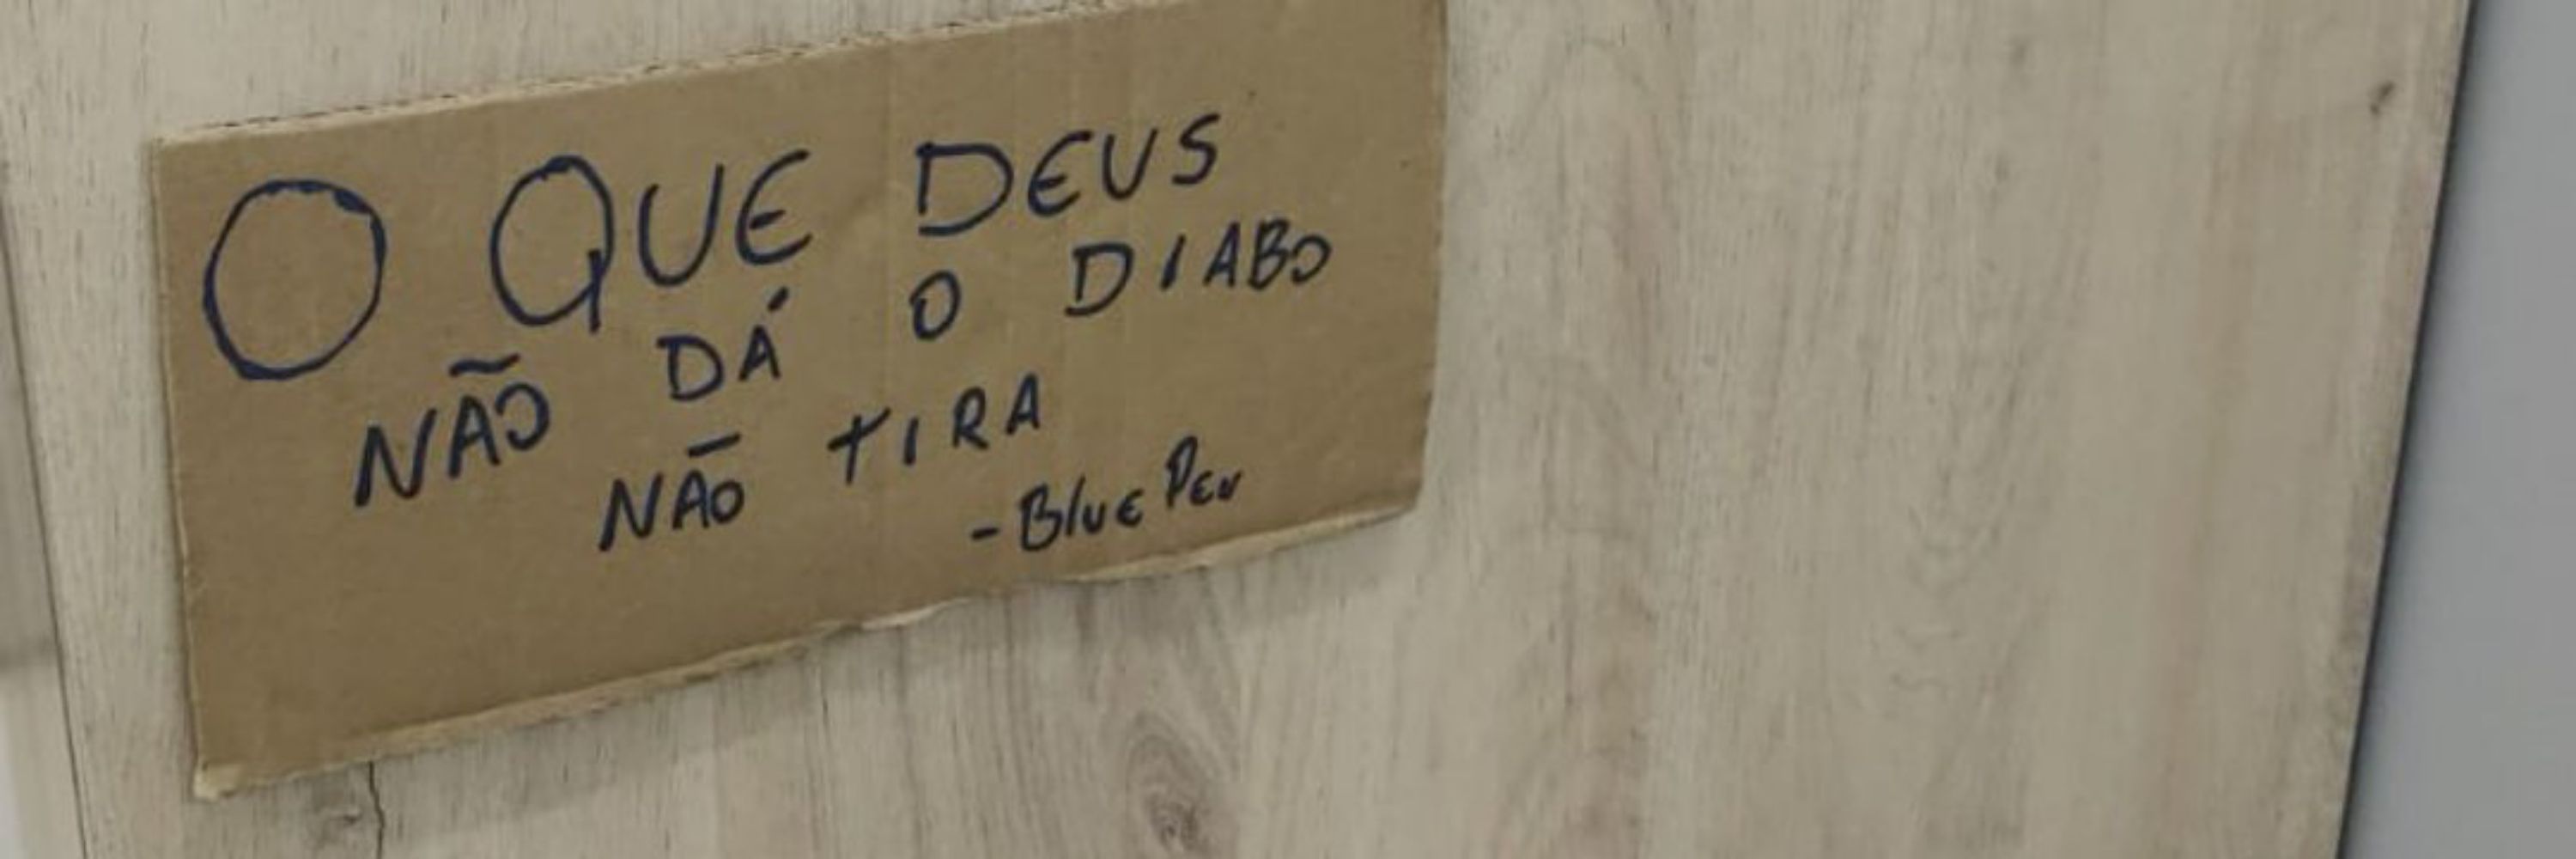 O QUE DEUS
NÃO DÁ O DIABO
NÃO TIRA
-Blue Pen